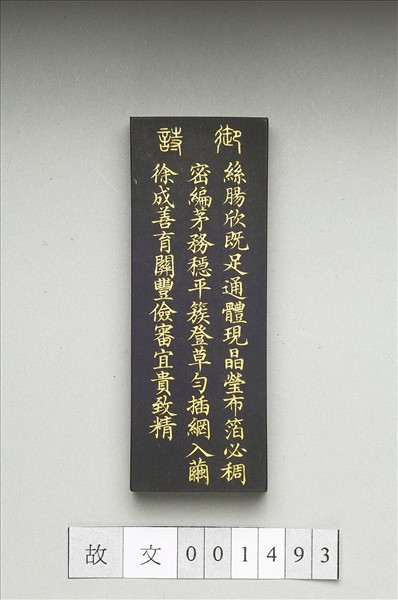 御詩
絲腸欣既足通體現晶瑩布箔必稠
密編茅務穩平簇登草勻插網入繭
徐成善育關豐儉審宜貴致精
故文001493